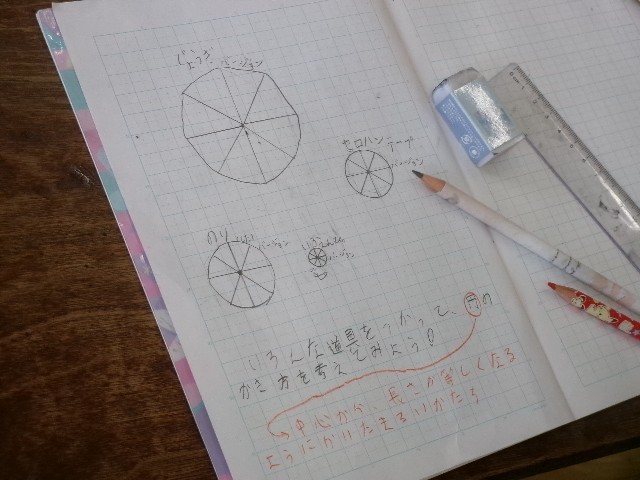 じょうぎ バージョン
セロハンテープ
バージョン
のり
バージョン
バージョン
いろんな道具をつかって、円の
かき方を考えてみよう!
中心から、長さが等しくなる
ようにかいたまるいかたち